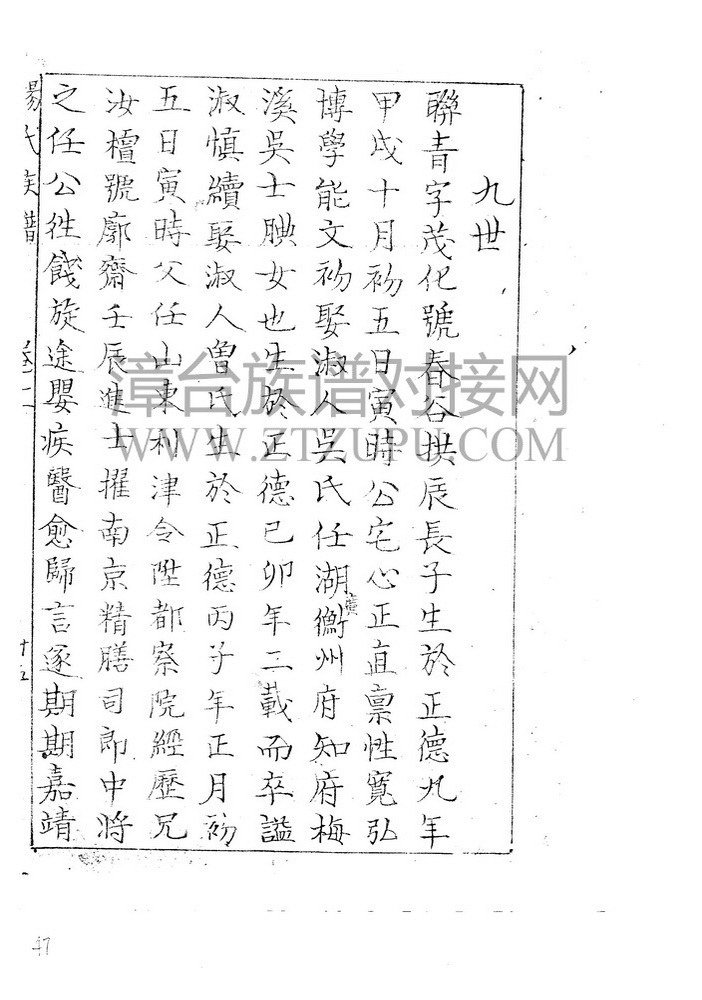 九世
聯青字茂化號春谷拱辰長子生於正德九年
甲戌十月初五日寅時公宅心正直禀性寬弘
博學能文初娶淑人吳氏任湖廣衡州府知府梅
溪吳士腆女也生於正德己卯年二載而卒謚
淑慎續娶淑人曾氏生於正德丙子年正月初
五日寅時父任山東利津令陞都察院經歷兄
汝檀號廓齋壬辰進士擢南京精膳司郎中將
之任公往餞旋途嬰疾醫愈歸言逐期期嘉靖
楊氏族譜 卷二 十五
漳台族谱对接网
WWW.ZTZUPU.COM
47